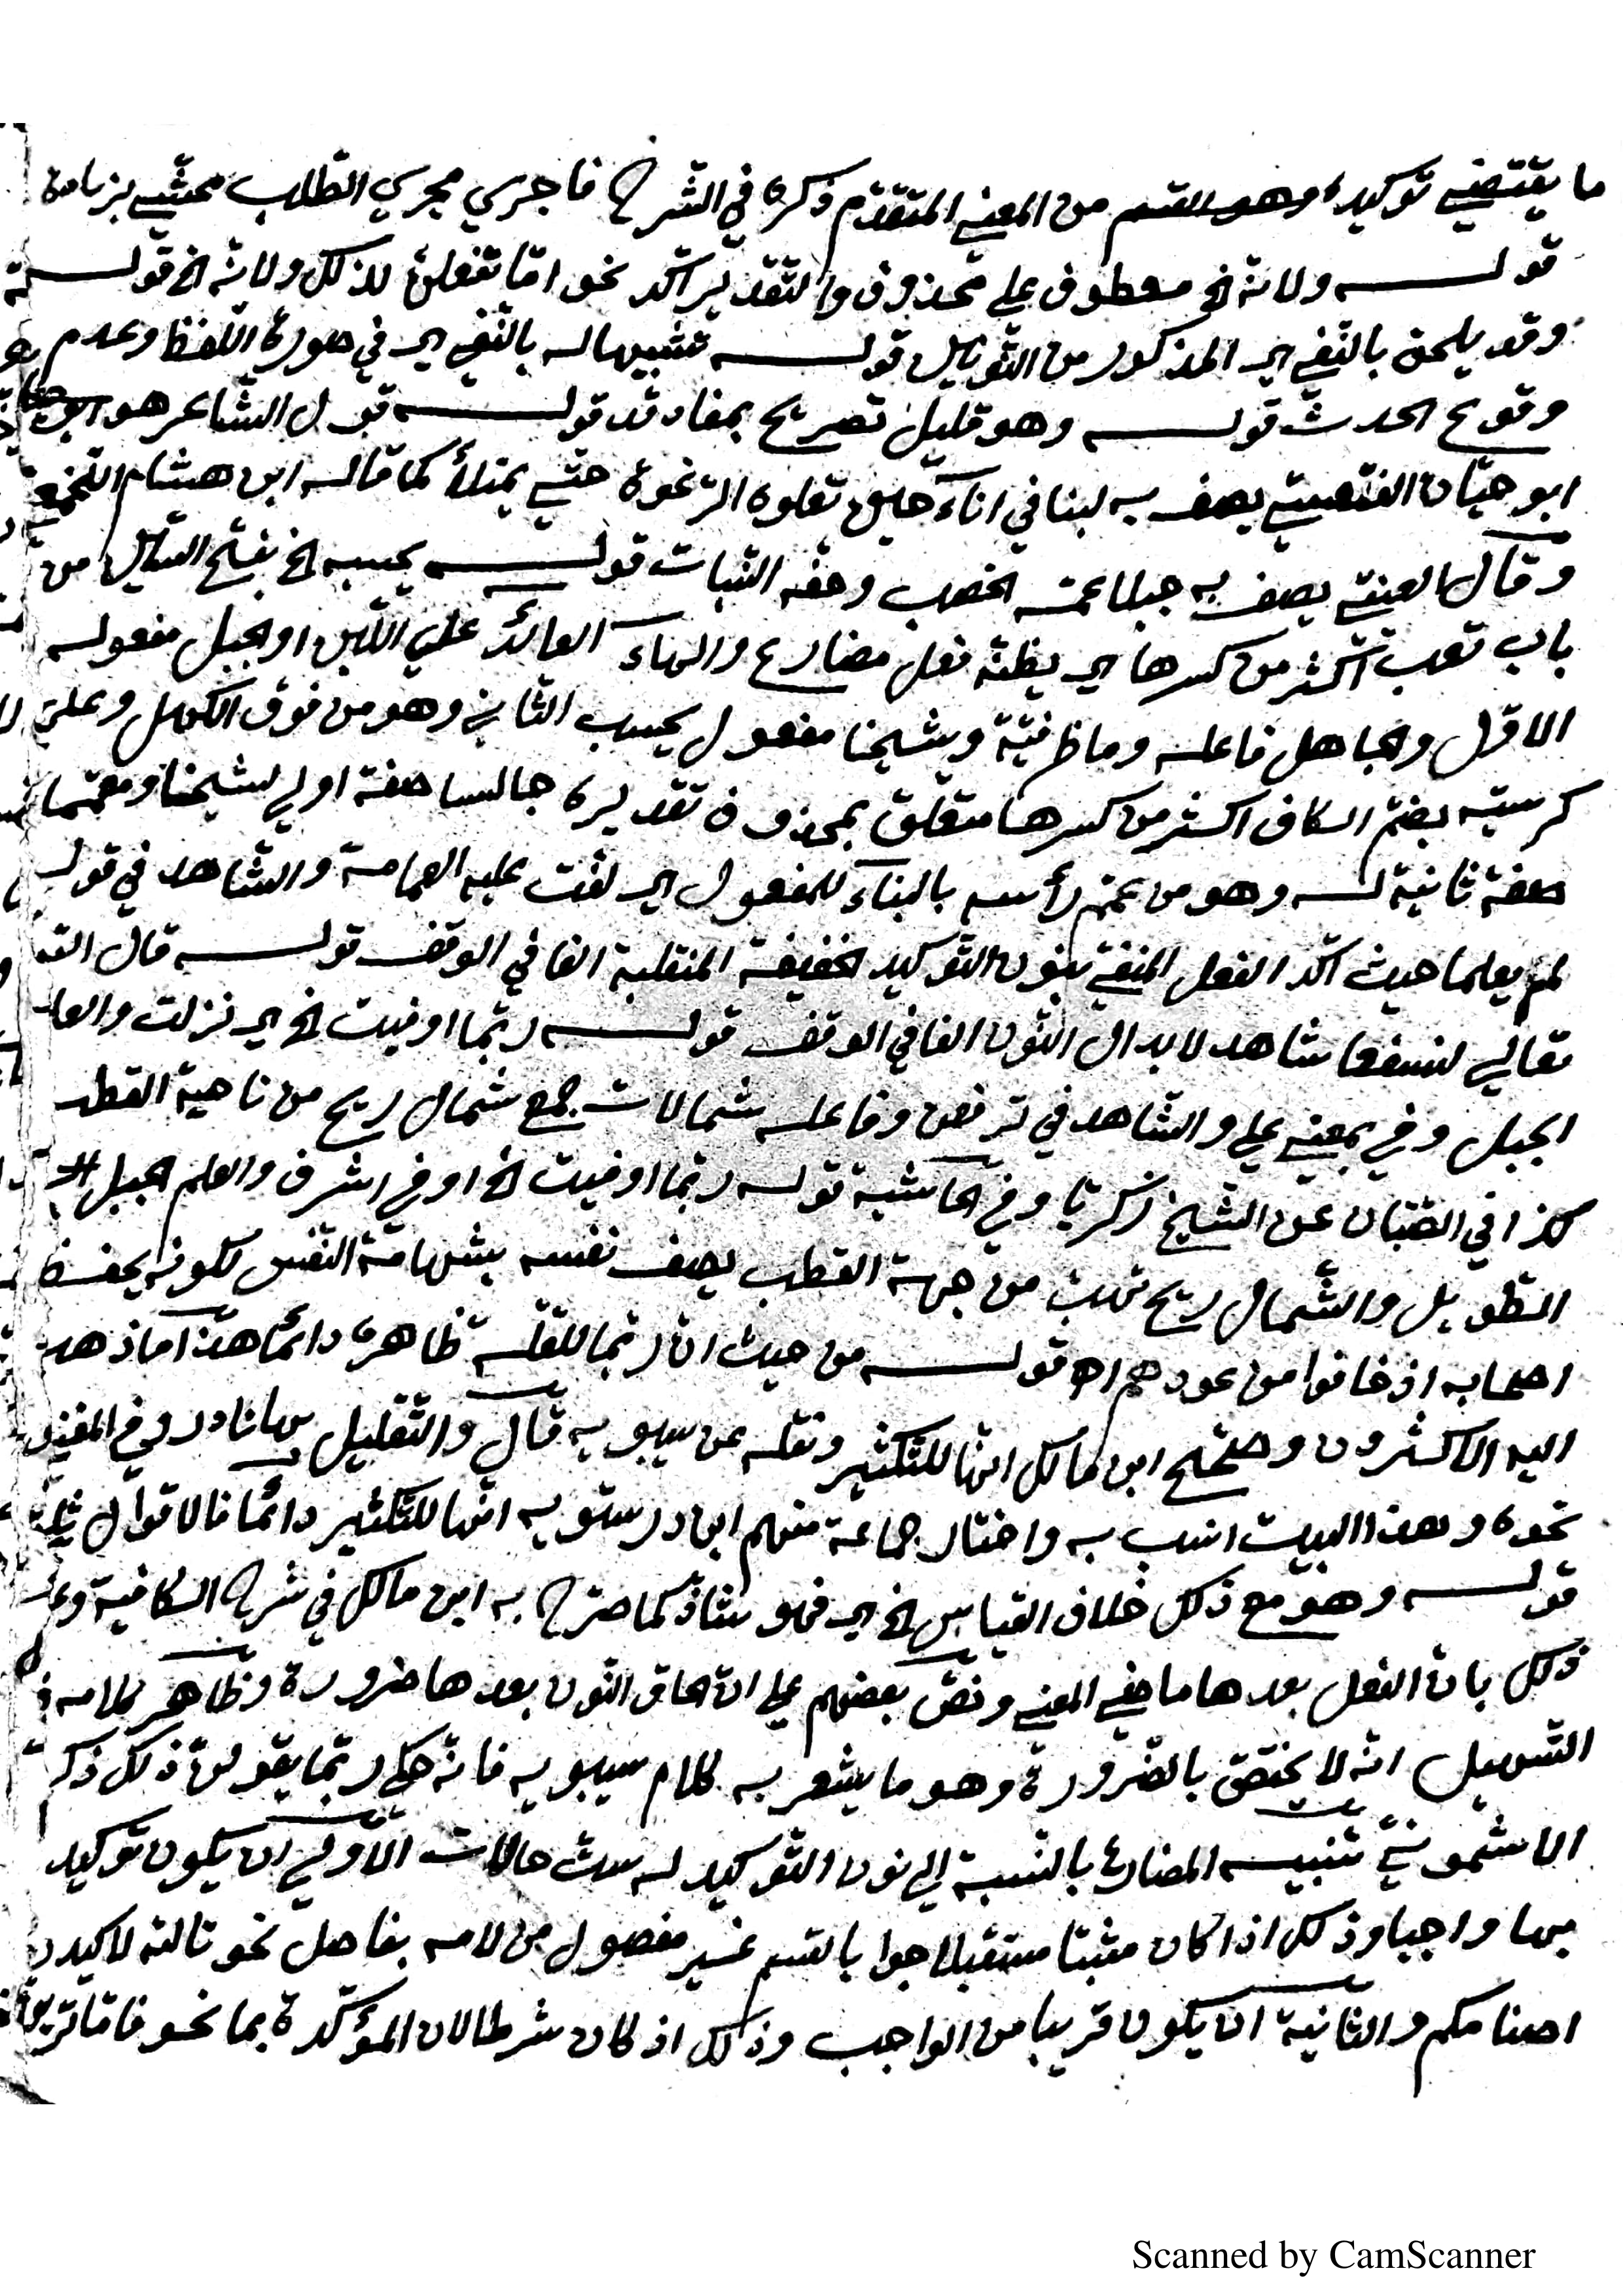 ما يقتضي توكيده وهو القسم من المعني المتقدّم ذكره في الشرح فاجري مجري الطلب محشّي بزيادة
قولـــه ولانه الخ معطوف علي محذوف والتقدير اكد نحو امّا تفعلنّ لذلك ولانه الخ قولـــه
وقد يلحق بالنّفي اي المذكور من التّوكيل قولـــه تشبيها له بالنّفي اي في صورة اللّفظ وعدم
وقوع الحدث قولـــه وهو قليل تصريح بمفاد قد قولـــه قول الشّاعر هو
ابو حيّان الفقعسيّ يصف به لبنا في اناء حليق تعلوه الرّغوة حتّي يمتلأ كما قاله ابن هشام اللّخميّ
وقال العينيّ يصف به جبلا عمّه الخصب وحفّه النّبات قولـــه يحسبه الخ بفتح السّين من
باب تعب اكثر من كسرها اي يظنّه فعل مضارع والهاء العائد علي اللّبن او الجبل مفعوله
الاوّل والجاهل فاعله وما ظرفيّة وشيخا مفعول يحسب الثّاني وهو من فوق الكهل وعلي
كرسيّه بضمّ الكاف اكثر من كسرها متعلّق بمحذوف تقديره جالسا صفة اولي لشيخا ومعمّما
صفة ثانية لـــه وهو من عمّم رأسه بالبناء للمفعول اي لفّت عليه العمامة والشّاهد في قوله
لم يعلما حيث اكّد الفعل المنفيّ بنون التّوكيد الخفيفة المنقلبة الفا في الوقف قولـــه قال اللّه
تعالي لنسفعا شاهد لابدال النّون الفا في الوقف قولـــه ربّما اوفيت الخ اي نزلت والعلم
الجبل وفي بمعني علي والشّاهد في ترفعن وفاعله شمالات جمع شمال ريح من ناحية القطب
كذا في الصّبّان عن الشّيخ زكريّا وفي الحاشية قوله ربّما اوفيت الخ اوفي اشرف والعلم الجبل
الطّويل والشّمال ريح تهبّ من جهة القطب يصف نفسه بشهامة النّفس لكونه يحفظ
اصحابه اذ خافوا من عودهم اه قولـــه من حيث انّ ربّما للقلّة ظاهره دائما هذا ما ذهب
اليه الاكثرون وصحّح ابن مالك انّها للتّكثير ونقله عن سيبويه قال والتّقليل بها نادر وفي المغني
نحوه وهذا البيت انسب به واختار جماعة منهم ابن درستويه انّها للتّكثير دائما فالاقوال ثلثة
قولـــه وهو مع ذلك خلاف القياس الخ اي فهو شاذّ كما صرّح به ابن مالك في شرح الكافية وعلّل
ذلك بانّ الفعل بعدها ماضي المعني ونصّ بعضهم علي انّ الحاق النّون بعدها ضرورة وظاهر كلامه في
التّسهيل انّه لا يختصّ بالضّرورة وهو ما يشعر به كلام سيبويه فانّه حكي ربّما يقولنّ ذلك ذكره
الاشمونيّ تنبيـــه المضارع بالنّسبة الي نون التّوكيد له ستّ حالات الاولي ان يكون توكيد
بها واجبا وذلك اذا كان مثبتا مستقبلا جوابا لقسم غير مفصول من لامه بفاصل نحو تاللّه لاكيدنّ
اصنامكم والثّانية ان يكون قريبا من الواجب وذلك اذ كان شرطا لان المؤكّدة بما نحو فامّا ترينّ
Scanned by CamScanner